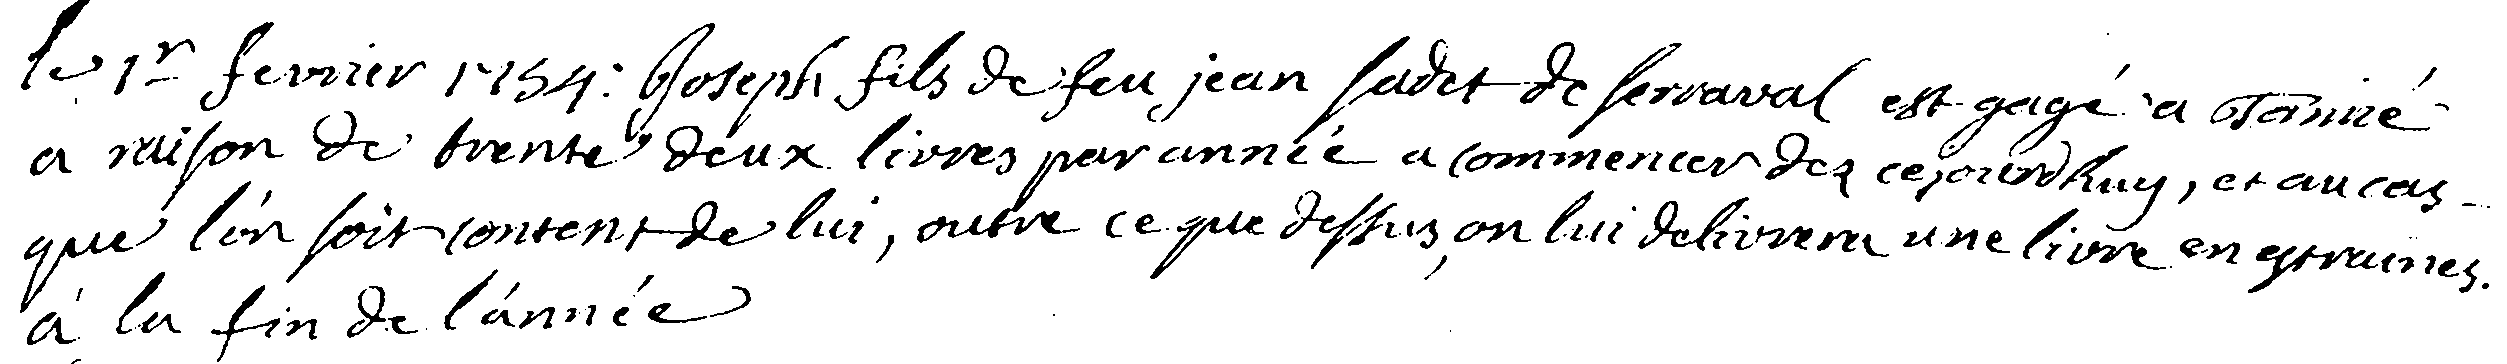 le 1r fevrier 1754: Joseph fils de feu jean sadet de serraval est gagé a
a raison de trente deux livres par année a commencer des cejourdhuy, et au cas
que l'on soit content de lui, outre ce que dessus, on lui delivrera une livre en estraines.
à la fin de l'année